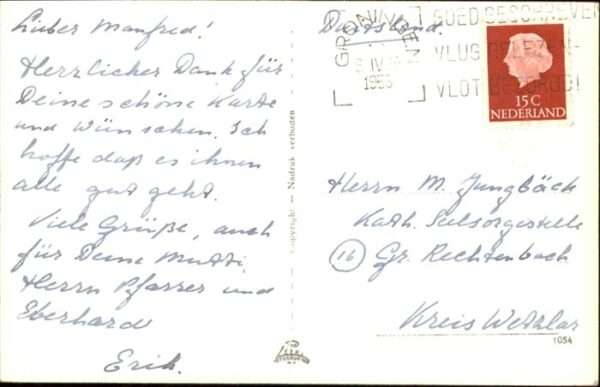 Lieber Manfred!
Herzlicher Dank für
Deine schöne Karte
und Wünschen. Ich
hoffe daß es ihnen
alle gut geht.
Viele Grüße, auch
für Deine Mutti,
Herrn Pfarrer und
Eberhard
Erik.
Copyright — Nadruk verboden
Duitsland.
GOED GESCHREVEN
VLUG GELEZEN-
VLOT BEZORGD!
IV
15 C
NEDERLAND
Herrn M. Jungbäck
Kath. Seelsorgestelle
(16) Gr. Rechtenbach
Kreis Wetzlar
1054